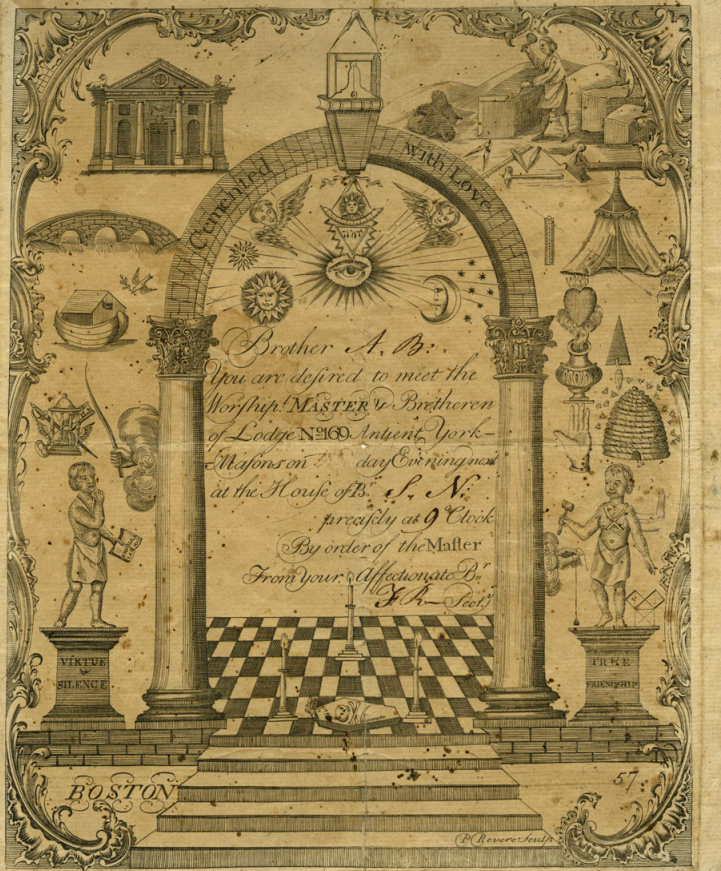 Cemented with Love
Brother A. B:
You are desired to meet the
Worship.l MASTER & Bretheren
of Lodge No 169 Antient York-
Masons on day Evening next
at the House of Br. S. N.
precisely at 9 'Clock
By order of the Master
From Your Affectionate Br.
F R— Secr.y
VIRTUE
&
SILENCE
TRUE
&
FRIENDSHIP
BOSTON
57
P Revere Sculp